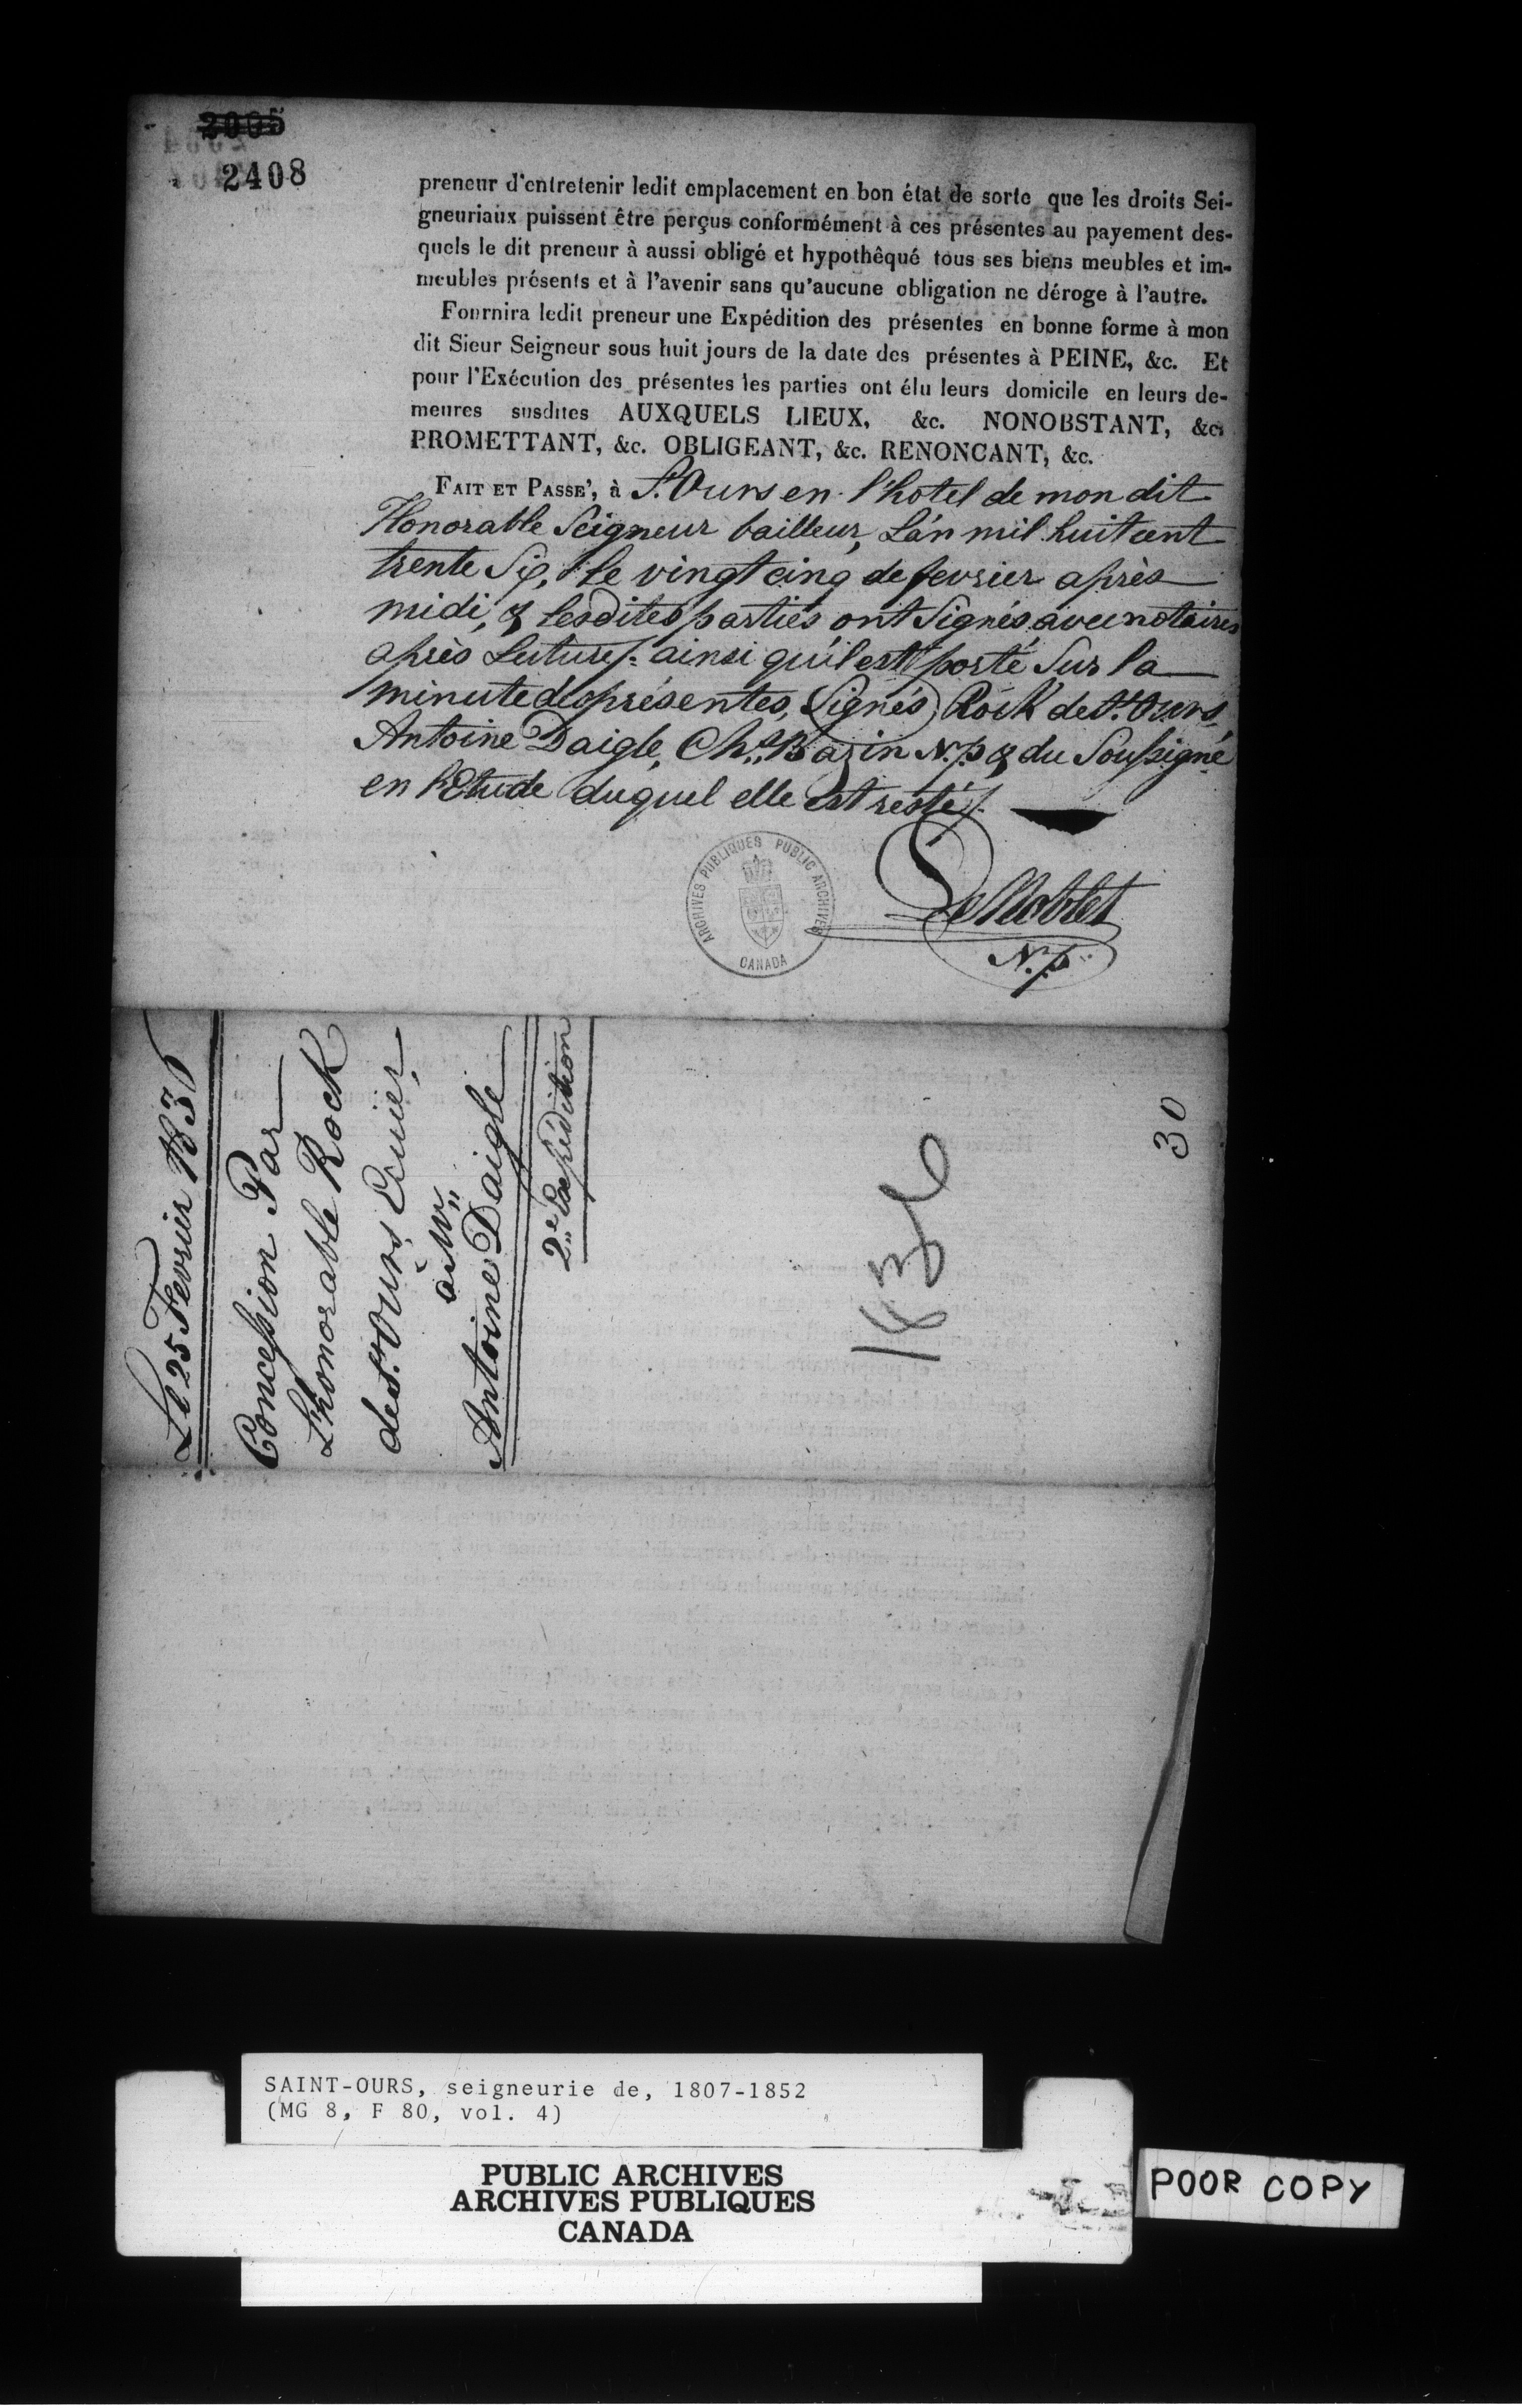 2005
2408
preneur d'entretenir ledit emplacement en bon état de sorte que les droits Sei-
gneuriaux puissent être perçus conformément à ces présentes au payement des-
quels le dit preneur à aussi obligé et hypothêqué tous ses biens meubles et im-
meubles présents et à l'avenir sans qu'aucune obligation ne déroge à l'autre.
Fournira ledit preneur une Expédition des présentes en bonne forme à mon
dit Sieur Seigneur sous huit jours de la date des présentes à PEINE, &c. Et
pour l'Exécution des présentes les parties ont élu leurs domicile en leurs de-
meures susdites AUXQUELS LIEUX, &c. NONOBSTANT, &c.
PROMETTANT, &c. OBLIGEANT, &c. RENONCANT, &c.
FAIT ET PASSE', à St. Ours en l'hotel de mon dit
Honorable Seigneur bailleur, L'an mil huit cent
trente Six, Le vingt cinq de fevrier après
midi, & lesdites parties ont Signés avec notaires
après Lecture/. ainsi qu'il est porté Sur la
minute des présentes, Signés, Rock de St. Ours,
Antoine Daigle, Chs. Bazin N.p & du Soussigné
en l'Etude duquel elle est resté/.
ARCHIVES PUBLIQUES PUBLIC ARCHIVES
CANADA
DeNoblet
N.p.
Le 25 Fevrier 1836
Concession Par
L'honorable Rock
de St. Ours Ecuier,
à Mr.
Antoine Daigle
2e. Expédition
1836
30
SAINT-OURS, seigneurie de, 1807-1852
(MG 8, F 80, vol. 4)
PUBLIC ARCHIVES
ARCHIVES PUBLIQUES
CANADA
POOR COPY